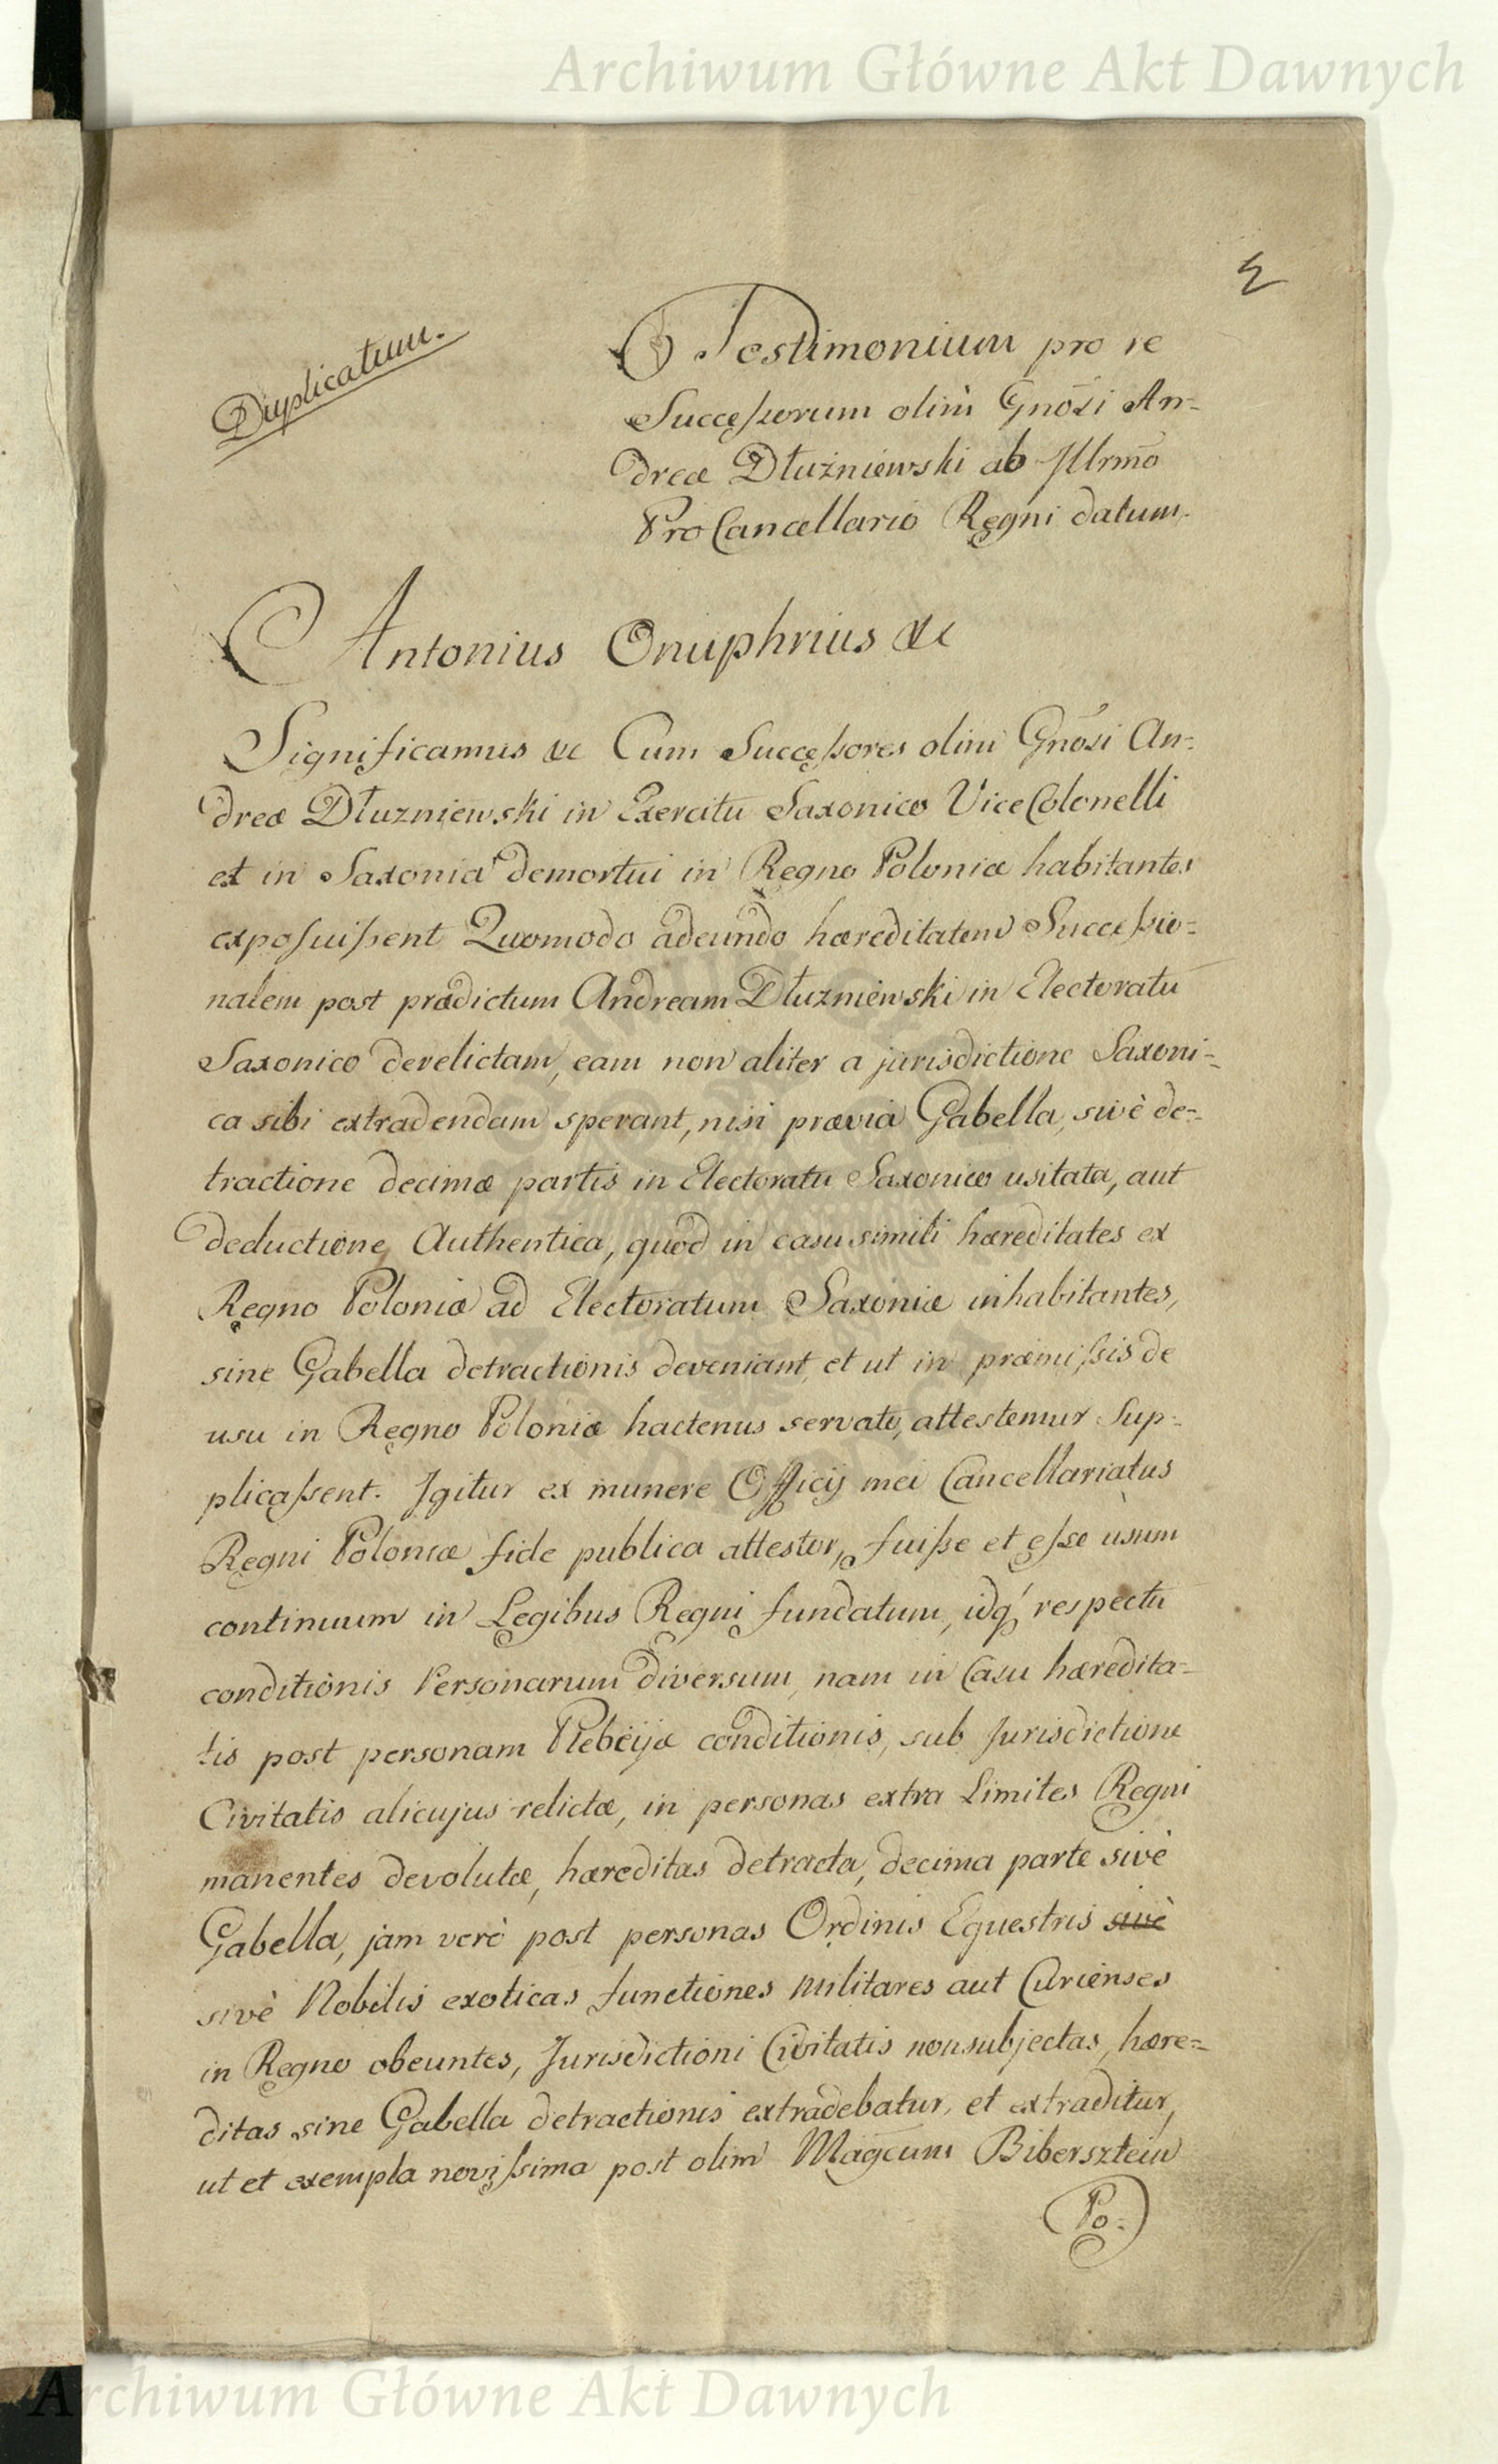 Archiwum Główne Akt Dawnych
2
Duplicatum.
Testimonium pro re
Successorum olim Gnōsi An=
dreæ Dłużniewski ab Illrmō
ProCancellario Regni datum.
Antonius Onuphrius &c
Significamus &c Cum Successores olim Gnōsi An=
dreæ Dłuzniewski in Exercitu Saxonico ViceColonelli
et in Saxonia demortui in Regno Poloniæ habitantes
exposuissent Quomodo adeundo hæreditatem Successio=
nalem post prædictum Andream Dłuzniewski in Electoratu
Saxonico derelictam, eam non aliter a jurisdictione Saxoni=
ca sibi extradendam sperant, nisi prævia Gabella, sivè de=
tractione decimæ partis in Electoratu Saxonico usitata, aut
deductione Authentica, quod in casu simili hæreditates ex
Regno Poloniæ ad Electoratum Saxoniæ inhabitantes,
sine Gabella detractionis deveniant, et ut in præmissis de
usu in Regno Poloniæ hactenus servato, attestemur Sup=
plicassent. Igitur ex munere Officij mei Cancellariatus
Regni Poloniæ fide publica attestor, fuisse et esse usum
continuum in Legibus Regni fundatum, idq' respectu
conditionis Personarum diversum, nam in Casu hæredita=
tis post personam Plebeijæ conditionis, sub Jurisdictione
Civitatis alicujus relictæ, in personas extra Limites Regni
manentes devolutæ, hæreditas detracta, decima parte sivè
Gabella, jam verò post personas Ordinis Equestris sivè
sivè Nobilis exoticas functiones militares aut Curienses
in Regno obeuntes, Jurisdictioni Civitatis non subjectas, hære=
ditas sine Gabella detractionis extradebatur, et extraditur,
ut et exempla novissima post olim Magcum Bibersztein
Po=
Archiwum Główne Akt Dawnych